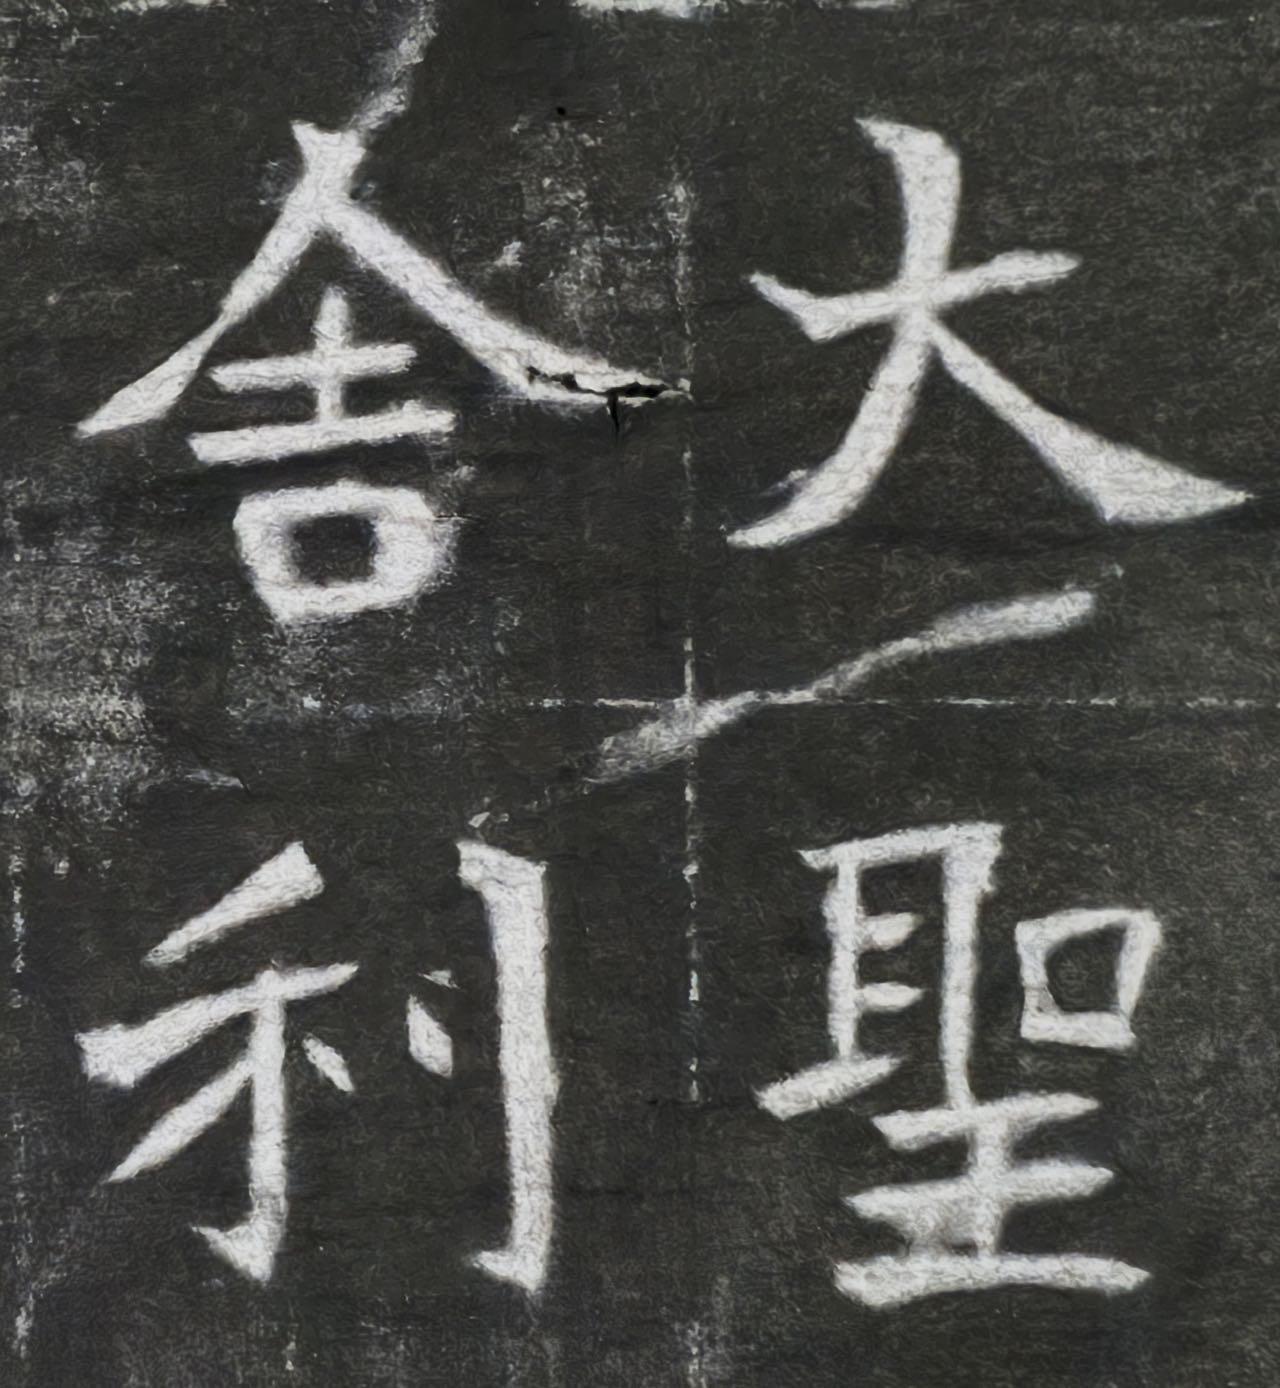 大聖
舍利